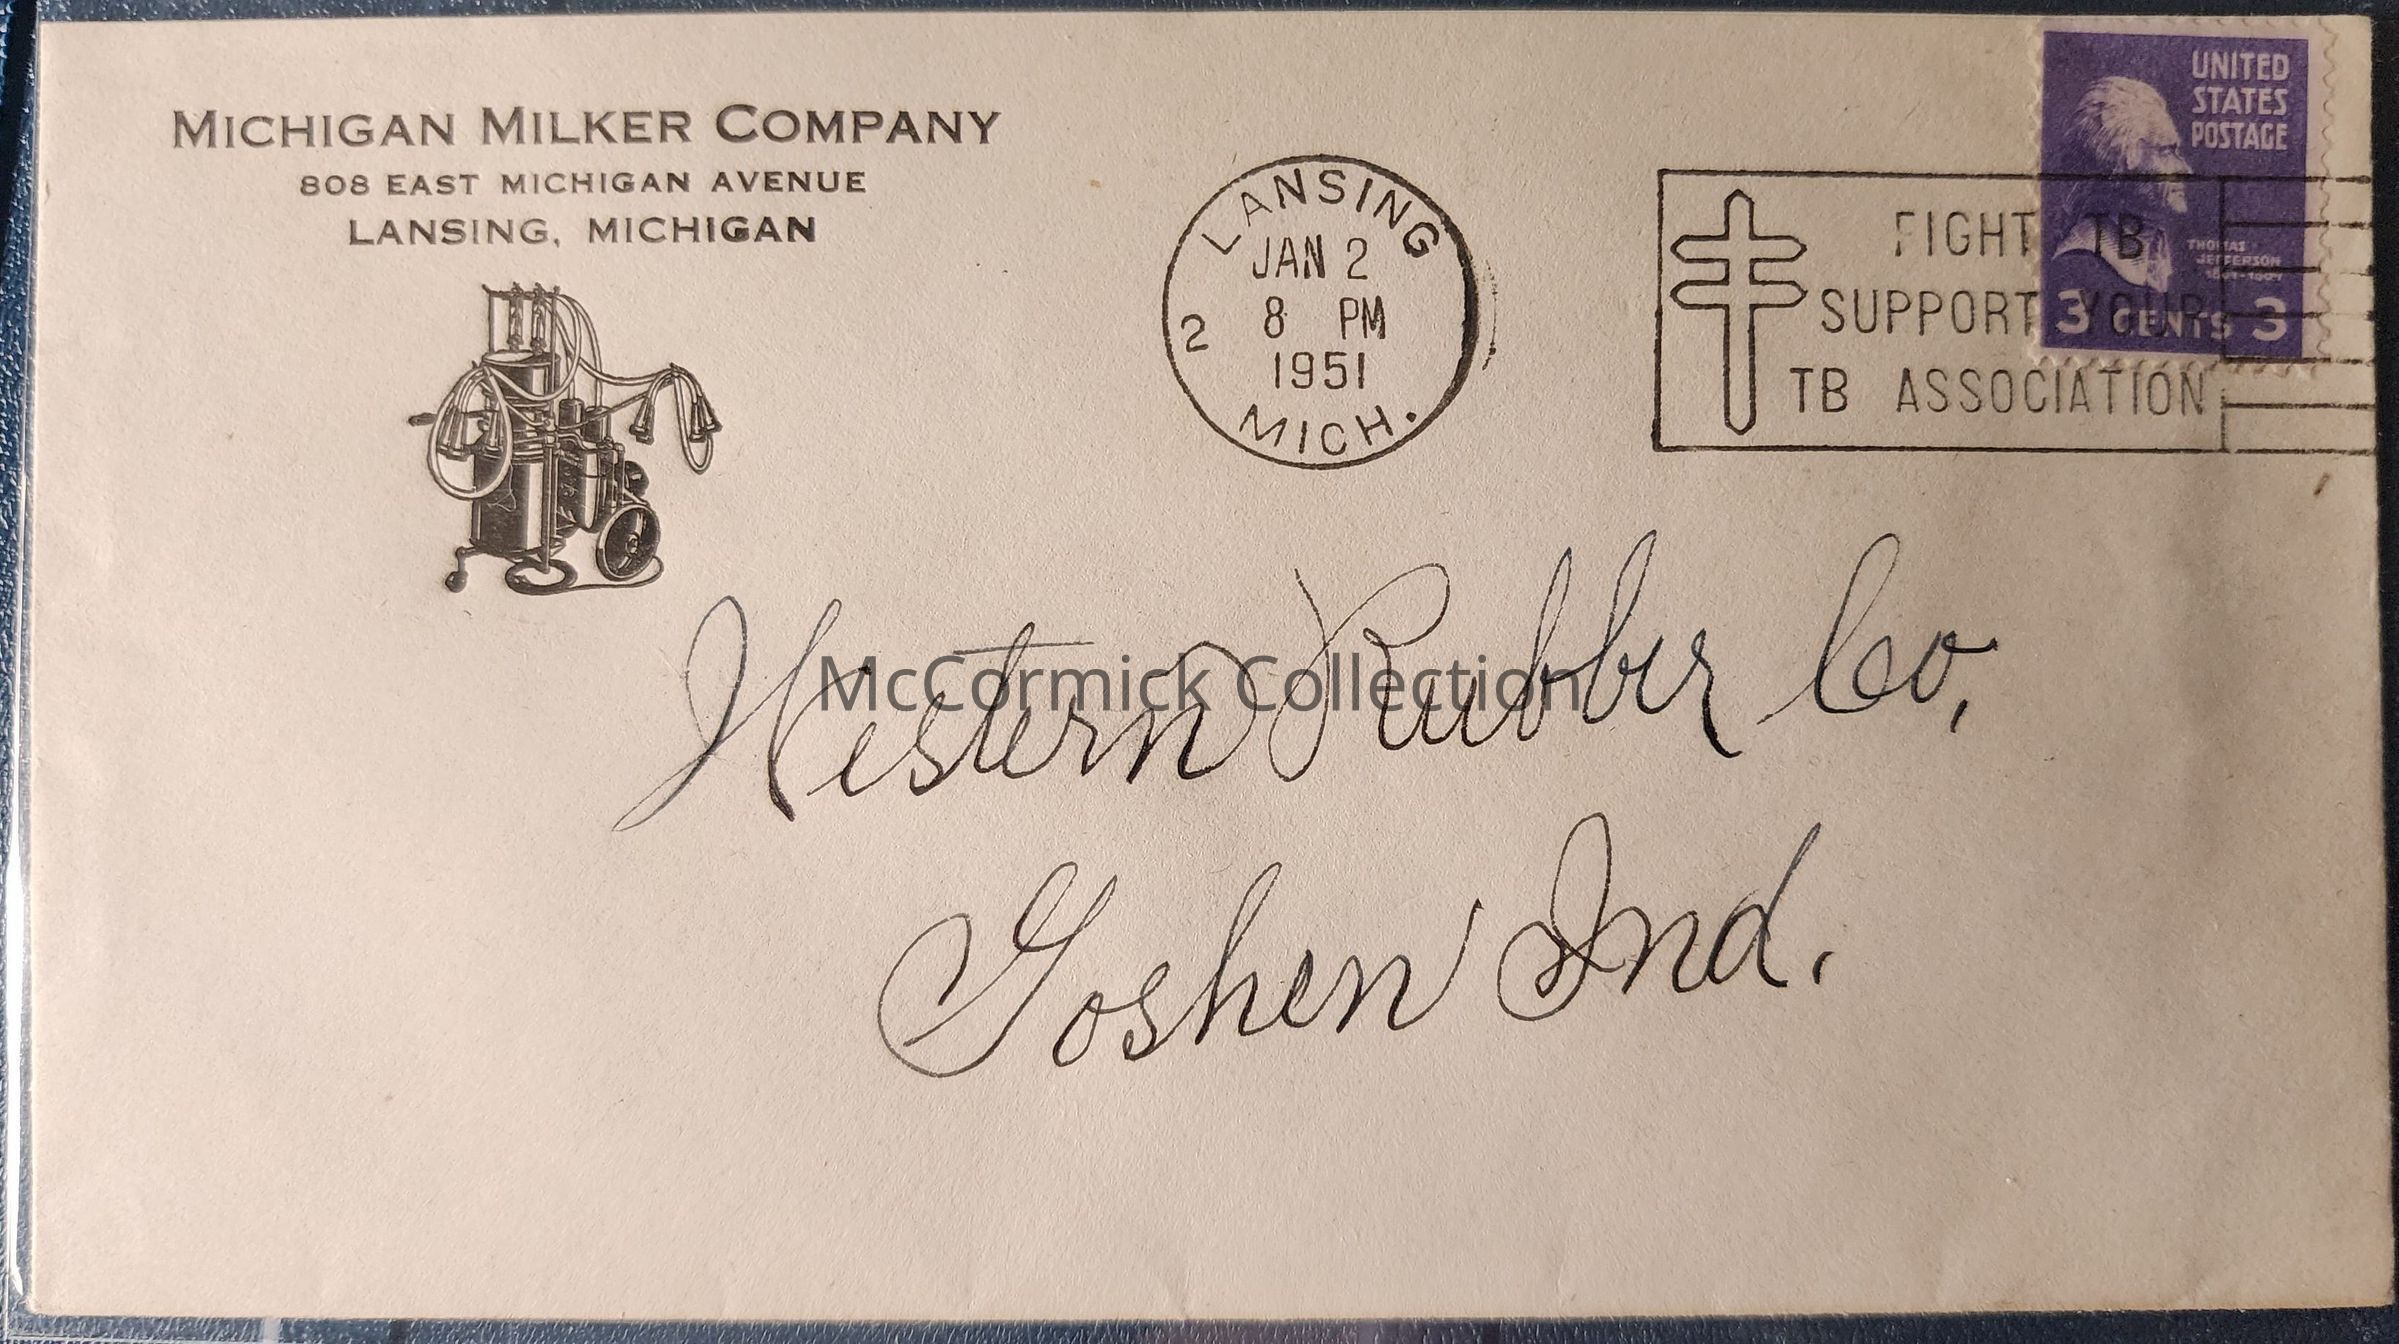 MICHIGAN MILKER COMPANY
808 EAST MICHIGAN AVENUE
LANSING, MICHIGAN
LANSING
JAN 2
2 8 PM
1951
MICH.
FIGHT TB
SUPPORT YOUR
TB ASSOCIATION
UNITED
STATES
POSTAGE
THOMAS
JEFFERSON
1801-1809
3 CENTS 3
Western Rubber Co,
Goshen Ind.
McCormick Collection